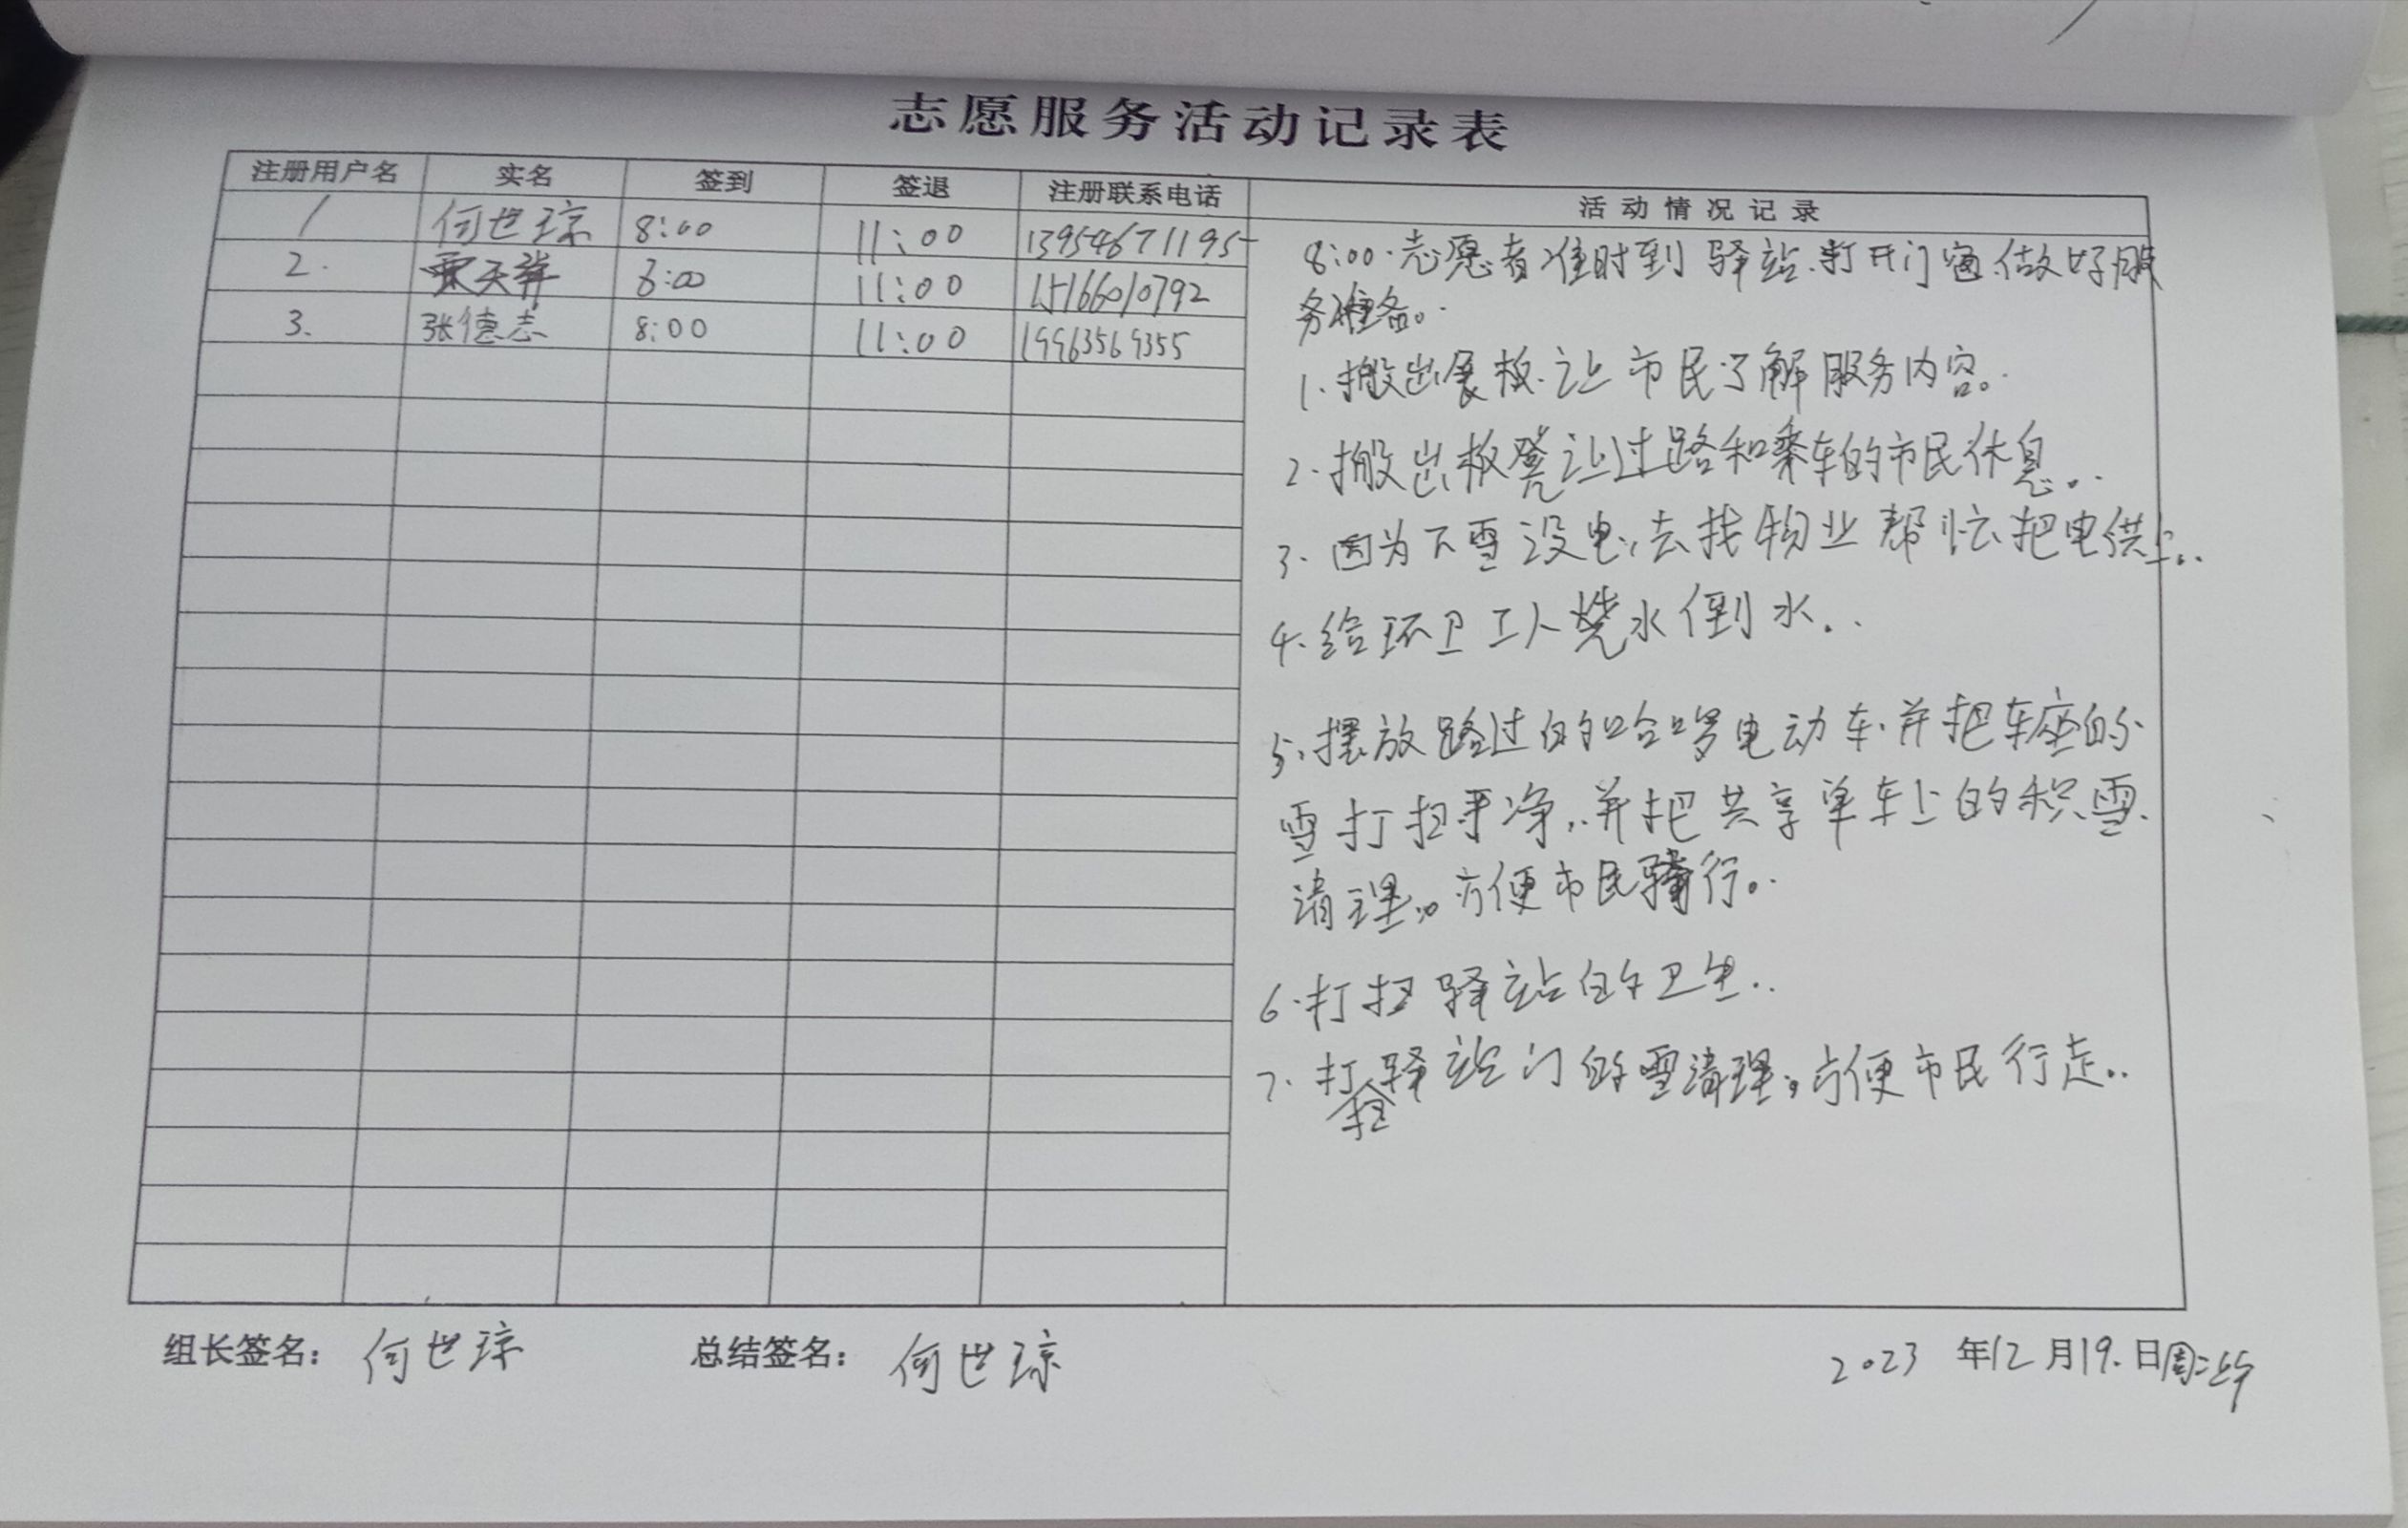 志愿服务活动记录表
注册用户名 实名 签到 签退 注册联系电话 活动情况记录
1 何世琼 8:00 11:00 13954671195
2. 天祥 8:00 11:00 15166010792
3. 张德志 8:00 11:00 19963569355
8:00.志愿者准时到驿站.打开门窗.做好服
务准备。
1.搬出展板.让市民了解服务内容。
2.搬出板凳让过路和乘车的市民休息..
3.因为下雪没电,去找物业帮忙把电供上..
4.给环卫工人烧水倒水..
5.摆放路过的哈啰电动车.并把车座的
雪打扫干净,.并把共享单车上的积雪.
清理.。方便市民骑行。
6.打扫驿站的卫生..
7.打扫驿站门的雪清理,方便市民行走..
组长签名: 何世琼 总结签名: 何世琼 2023 年12月19.日周二上午